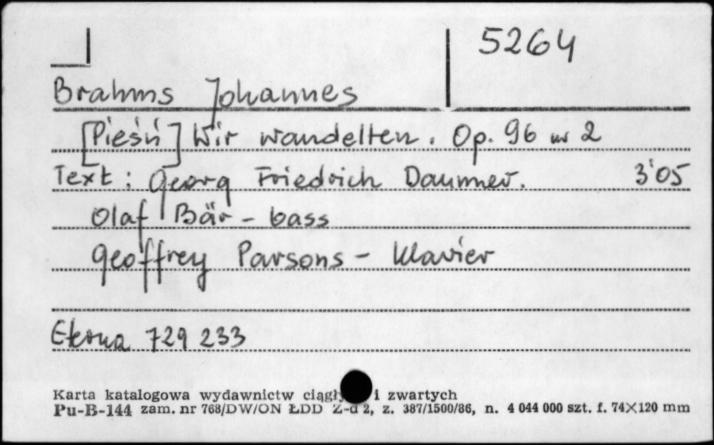 5264
Brahms Johannes
[Pieśń] Wir wandelten. Op. 96 nr 2
Text: Georg Friedrich Daumer. 3'05
Olaf Bär - bass
Geoffrey Parsons - Klavier
729 233
Karta katalogowa wydawnictw i zwartych
Pu-B-144 zam. nr 768/DW/ON ŁDD Z-d 2, z. 387/1500/86, n. 4 044 000 szt. f. 74×120 mm